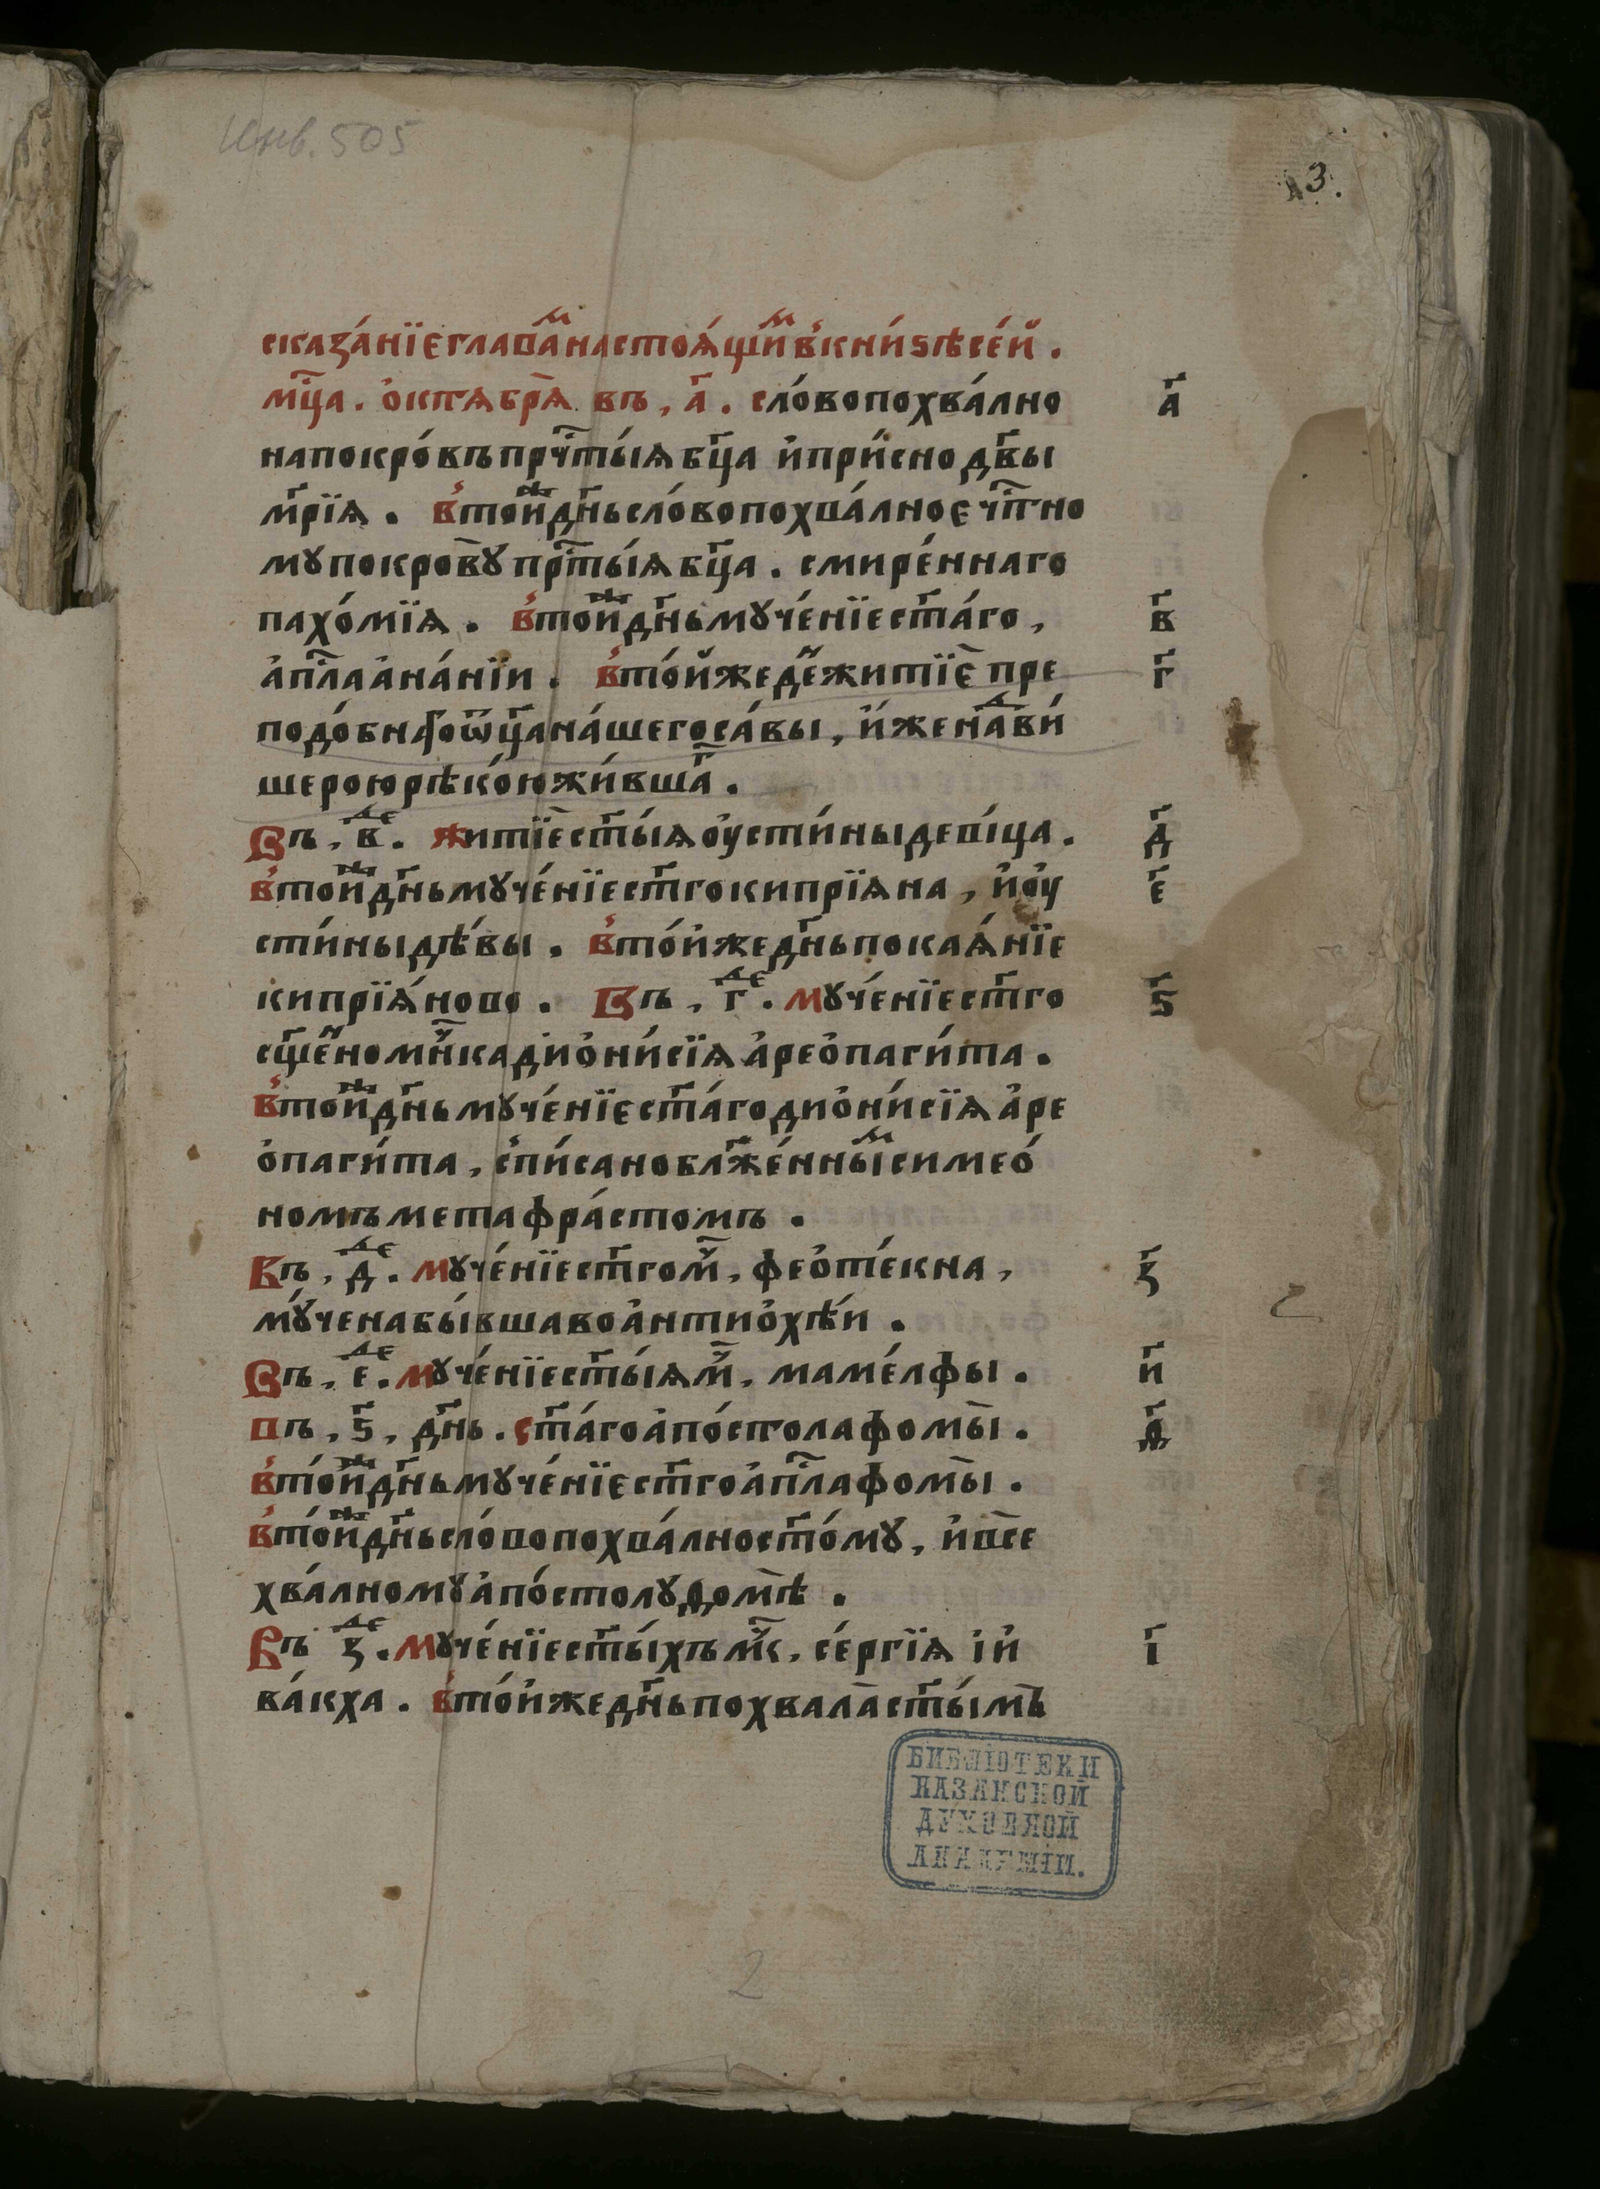 Инв. 505
3.
сказа́нїе глава́мъ настоѧ́щимъ в кни́ѕѣ се́й .
мц҃а . о҆ктѧбрѧ̀ въ , а҃ . сло́во похва́лно а҃
на покро́въ прчⷭ҇тыѧ бц҃а и҆ при́сно дв҃ы
мр҃їѧ . в то́йже дн҃ь сло́во похва́лное чтⷭ҇но
мꙋ покровꙋ̀ прⷭ҇тыѧ бц҃а . смире́ннаго
пахо́мїѧ . в то́йже дн҃ь мꙋче́нїе ст҃а́го , в҃
а҆пⷭ҇ла а҆на́нїи . в то́йже де҃нь житїѐ пре г҃
подо́бнаго ѿц҃а на́шего са́вы , и҆́же надъ ви́
шерою рѣко́ю жи́вшаго .
Въ , в҃ . житїѐ ст҃ы́ѧ оу҆сти́ны деви́ца . д҃
в то́йже дн҃ь мꙋче́нїе ст҃го киприїѧна , и҆ оу҆ е҃
сти́ны дѣ́вы . в то́йже дн҃ь покаѧ́нїе
кипрїѧ́ново . Въ , г҃ . мꙋче́нїе ст҃го ѕ҃
сщ҃енномч҃нка дїѻни́сїѧ а҆реѻпаги́та .
в то́йже дн҃ь мꙋче́нїе ст҃а́го диѻни́сїѧ а҆ре
ѻпаги́та , спи́сано бл҃же́нны́мъ симео́
номъ метафра́стомъ .
Въ , д҃ . мꙋче́нїе ст҃го мч҃ , феѻте́кна , з҃
мꙋ́чена бы́вша во а҆нтиѻхѣ́и .
Въ , е҃ . мꙋче́нїе ст҃ы́ѧ мч҃ , маме́лфы . и҃
въ , ѕ҃ , дн҃ь . ст҃а́го а҆по́стола фомы̀ . ѳ҃
в то́йже дн҃ь мꙋче́нїе ст҃го а҆пⷭ҇ла фомы̀ .
в то́йже дн҃ь сло́во похва́лно ст҃о́мꙋ , и҆ все
хва́лномꙋ а҆по́столꙋ фомѣ̀ .
Въ з҃ . мꙋче́нїе ст҃ы́хъ мч҃к , се́ргїѧ і и҆ і҃
ва́кха . в то́йже дн҃ь похвала̀ ст҃ы́мъ
БИБЛІОТЕКИ
КАЗАНСКОЙ
ДУХОВНОЙ
АКАДЕМІИ.
2